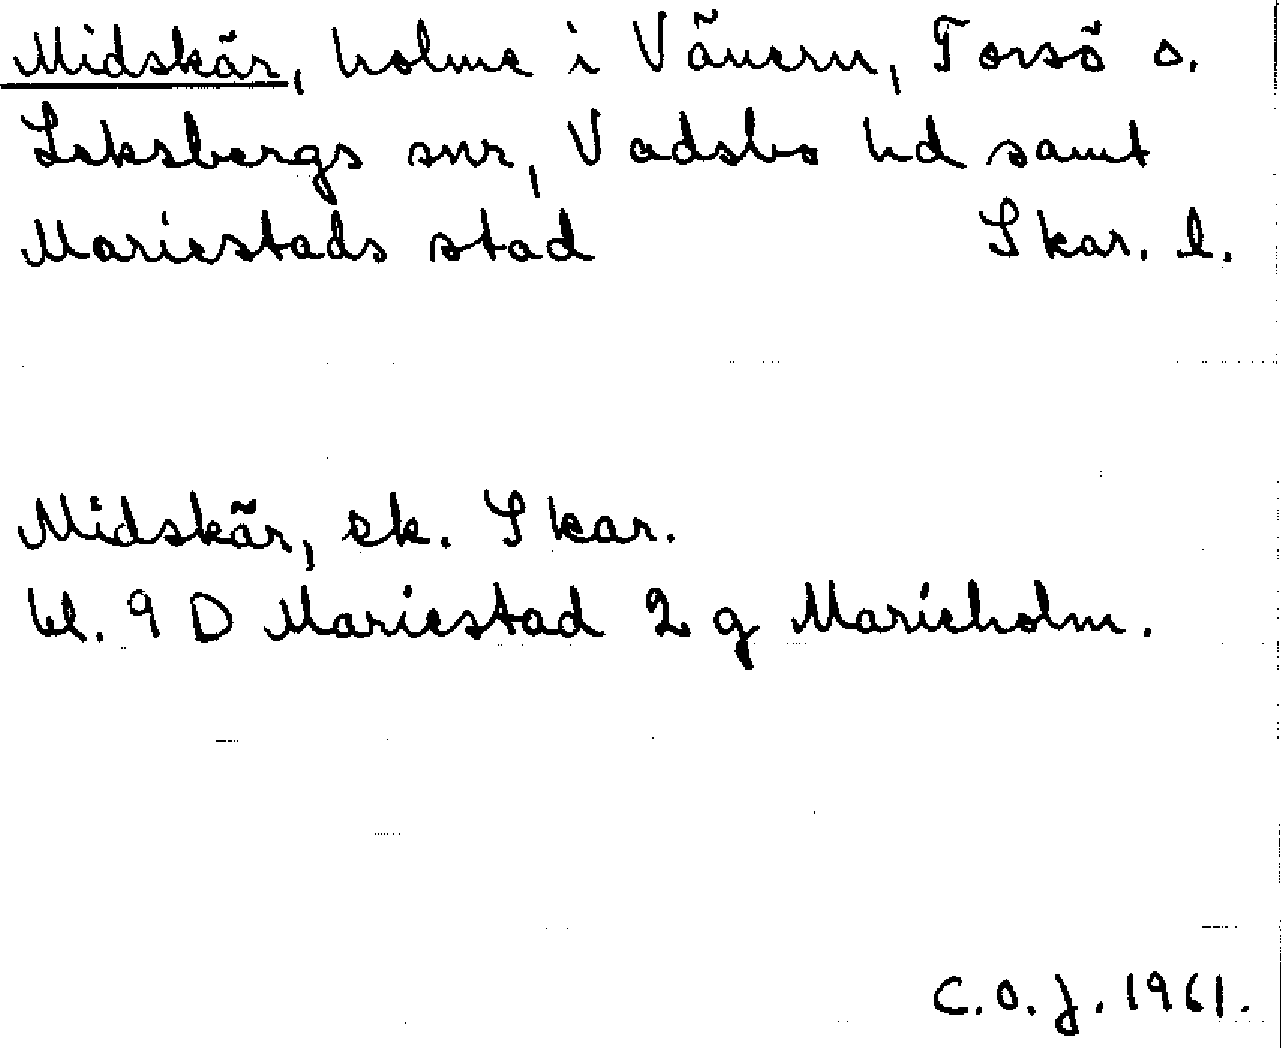 Midskär, holme i Vänern, Torsö o.
Leksbergs snr, Vadsbo hd samt
Mariestads stad Skar. l.
Midskär, ek. Skar.
bl. 9 D Mariestad 2 g Marieholm.
C.O.J. 1961.